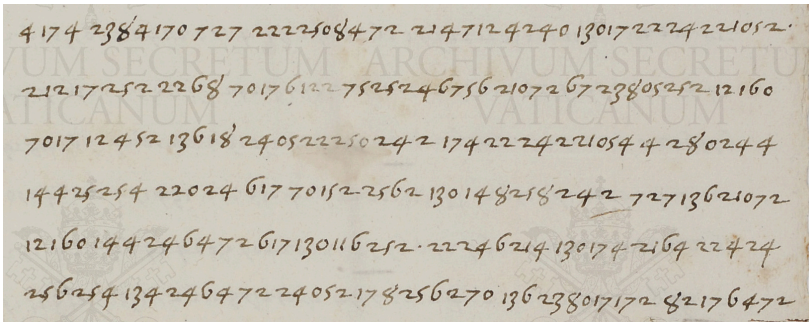 4174 2384170 727 2222508472 2147124240 13017222422 1052·
21217252 2268 7017 6122 7525246756 21072 67238052 52 12160
7017 12452 13618 2405222502 42 17422242210544 280244
14425254 22024 617 70152 2562 130148258242 72713621072
12160 1442464726171301162 52· 22246214 130174 2164 22424
256254 134246472 24052178256270 1362380171 72 82176472